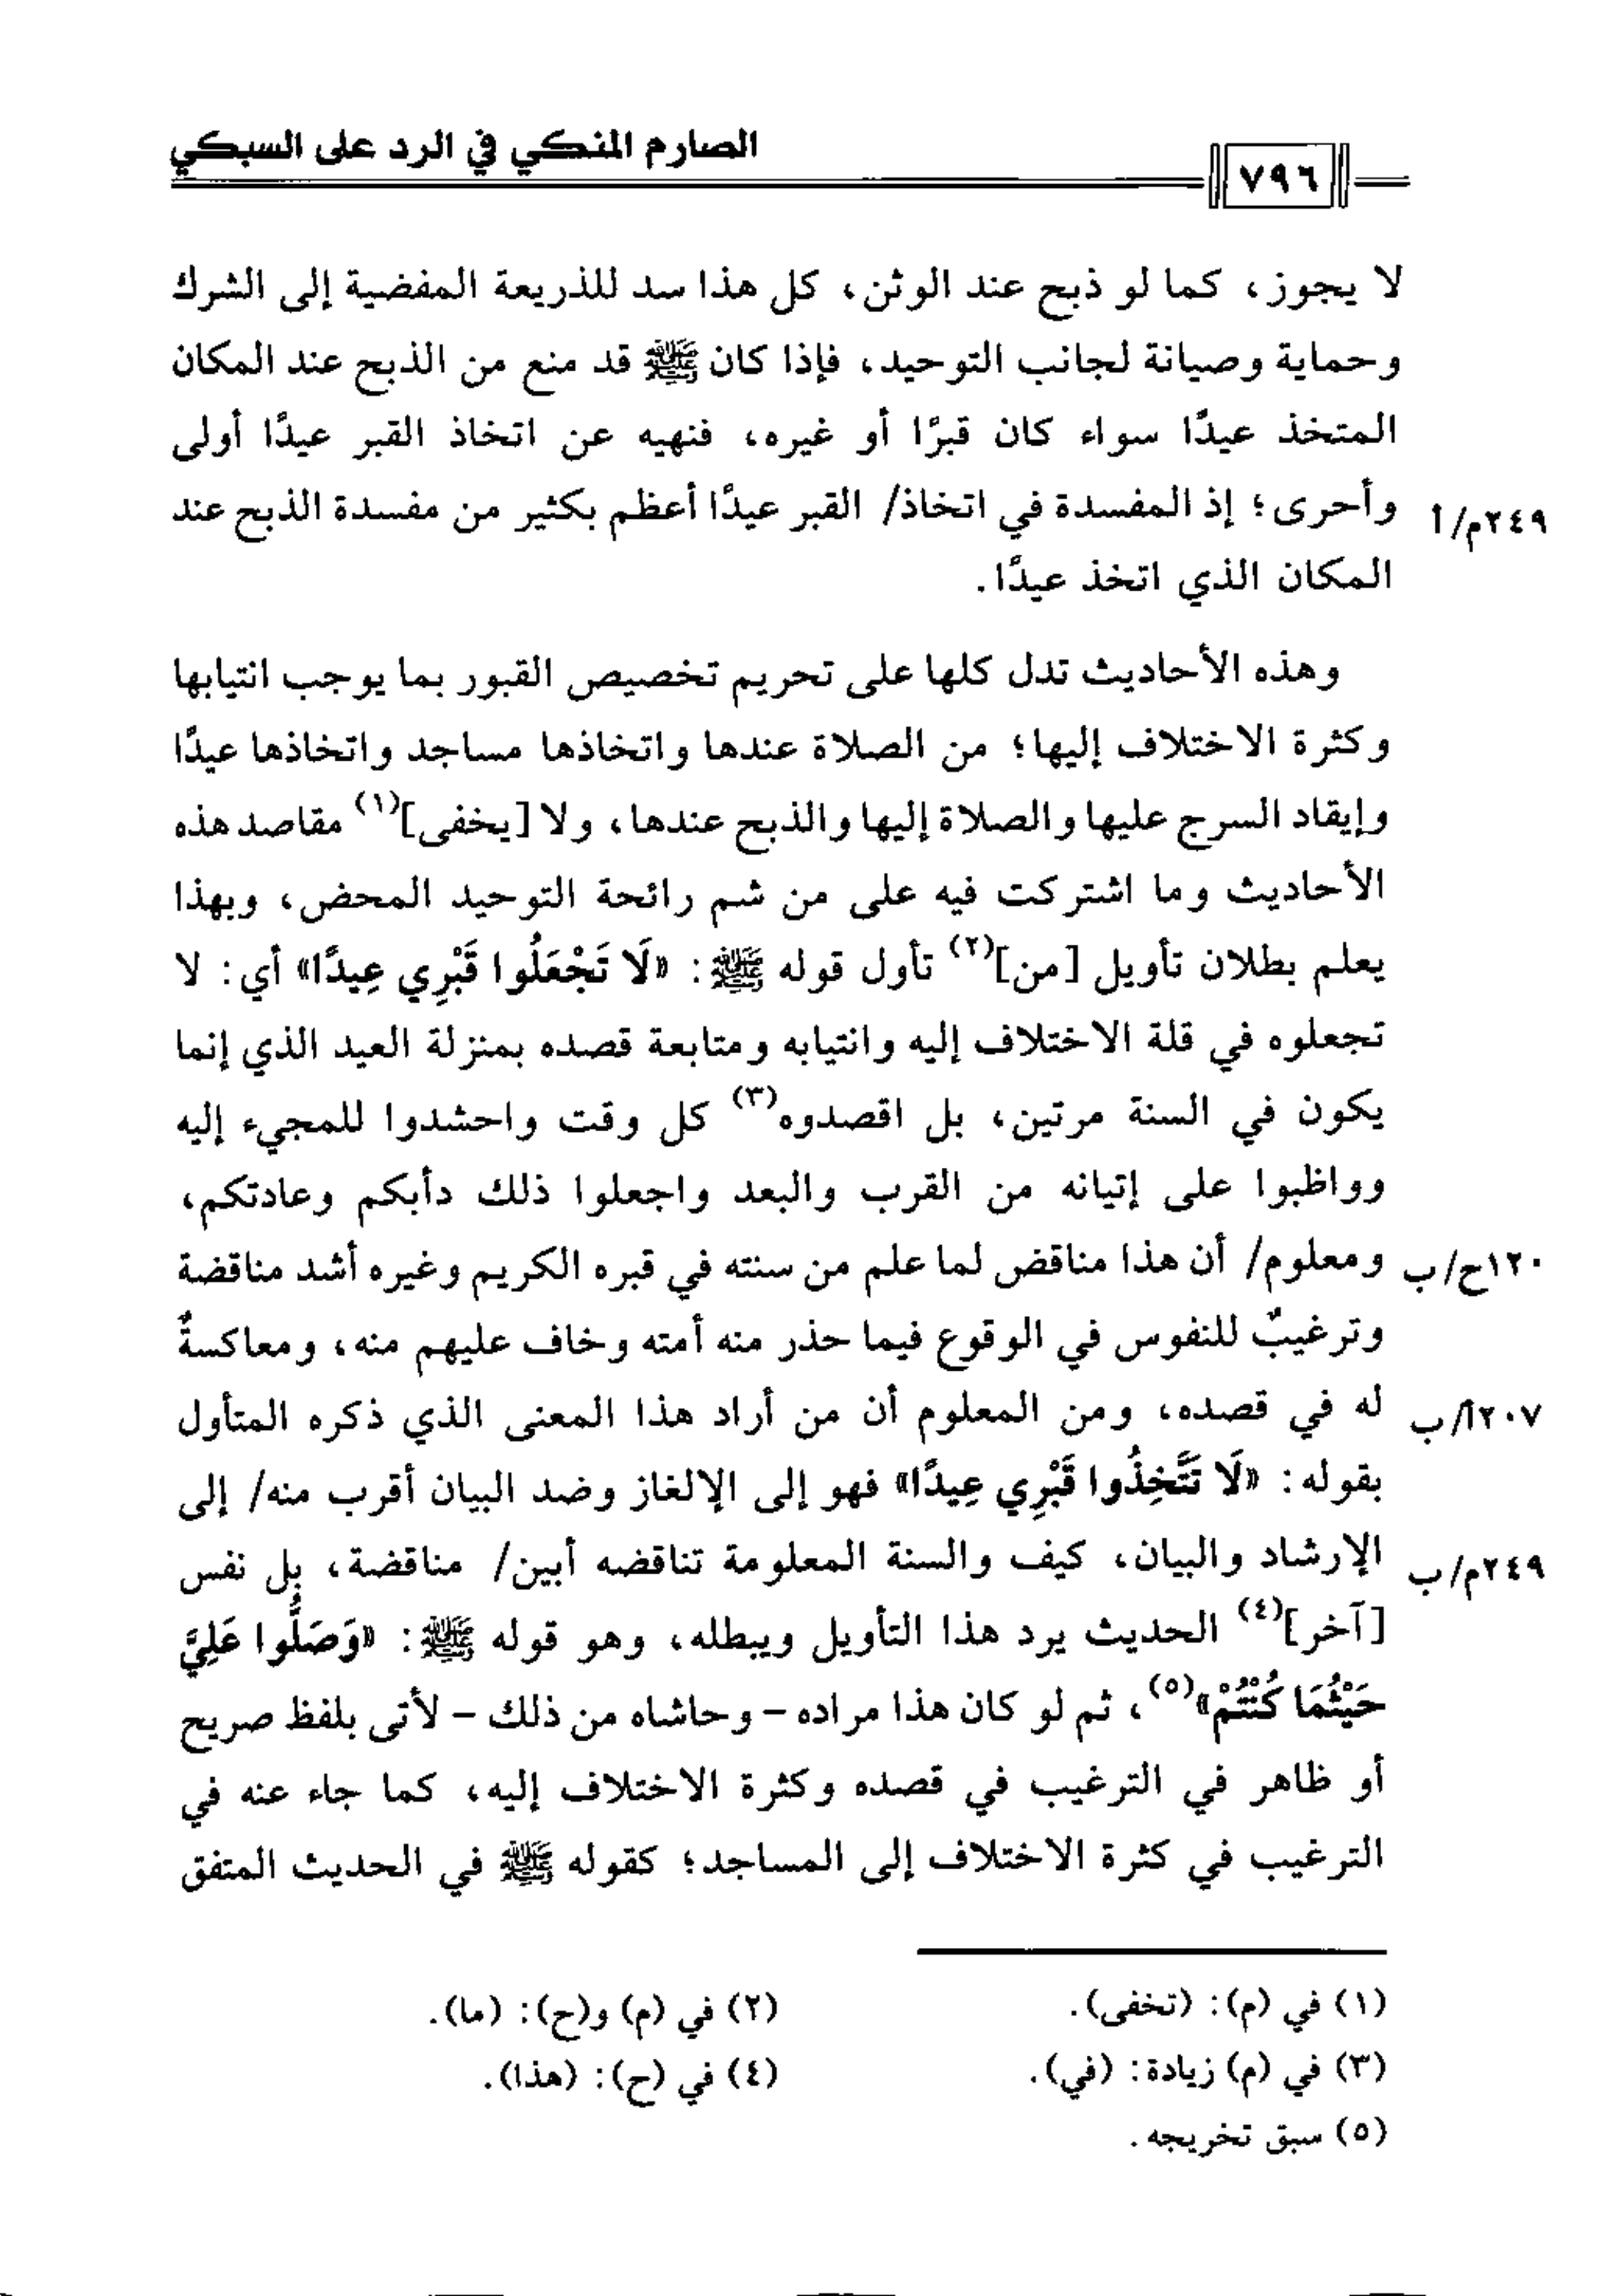 الصارم المنكي في الرد على السبكي
٧٩٦
لا يجوز، كما لو ذبح عند الوثن، كل هذا سد للذريعة المفضية إلى الشرك
وحماية وصيانة لجانب التوحيد، فإذا كان ﷺ قد منع من الذبح عند المكان
المتخذ عيدًا سواء كان قبرًا أو غيره، فنهيه عن اتخاذ القبر عيدًا أولى
وأحرى؛ إذ المفسدة في اتخاذ/ القبر عيدًا أعظم بكثير من مفسدة الذبح عند
٢٤٩م/أ
المكان الذي اتخذ عيدًا.
وهذه الأحاديث تدل كلها على تحريم تخصيص القبور بما يوجب انتيابها
وكثرة الاختلاف إليها؛ من الصلاة عندها واتخاذها مساجد واتخاذها عيدًا
وإيقاد السرج عليها والصلاة إليها والذبح عندها، ولا [يخفى](١) مقاصد هذه
الأحاديث وما اشتركت فيه على من شم رائحة التوحيد المحض، وبهذا
يعلم بطلان تأويل [من](٢) تأول قوله ﷺ: «لَا تَجْعَلُوا قَبْرِي عِيدًا» أي: لا
تجعلوه في قلة الاختلاف إليه وانتيابه ومتابعة قصده بمنزلة العيد الذي إنما
يكون في السنة مرتين، بل اقصدوه(٣) كل وقت واحشدوا للمجيء إليه
وواظبوا على إتيانه من القرب والبعد واجعلوا ذلك دأبكم وعادتكم،
ومعلوم/ أن هذا مناقض لما علم من سنته في قبره الكريم وغيره أشد مناقضة
١٢٠ح/ب
وترغيبٌ للنفوس في الوقوع فيما حذر منه أمته وخاف عليهم منه، ومعاكسةٌ
له في قصده، ومن المعلوم أن من أراد هذا المعنى الذي ذكره المتأول
٢٠٧أ/ب
بقوله: «لَا تَتَّخِذُوا قَبْرِي عِيدًا» فهو إلى الإلغاز وضد البيان أقرب منه/ إلى
الإرشاد والبيان، كيف والسنة المعلومة تناقضه أبين/ مناقضة، بل نفس
٢٤٩م/ب
[آخر](٤) الحديث يرد هذا التأويل ويبطله، وهو قوله ﷺ: «وَصَلُّوا عَلِيَّ
حَيْثُمَا كُنْتُمْ»(٥)، ثم لو كان هذا مراده – وحاشاه من ذلك – لأتى بلفظ صريح
أو ظاهر في الترغيب في قصده وكثرة الاختلاف إليه، كما جاء عنه في
الترغيب في كثرة الاختلاف إلى المساجد؛ كقوله ﷺ في الحديث المتفق
(١) في (م): (تخفى).
(٢) في (م) و(ح): (ما).
(٣) في (م) زيادة: (في).
(٤) في (ح): (هذا).
(٥) سبق تخريجه.